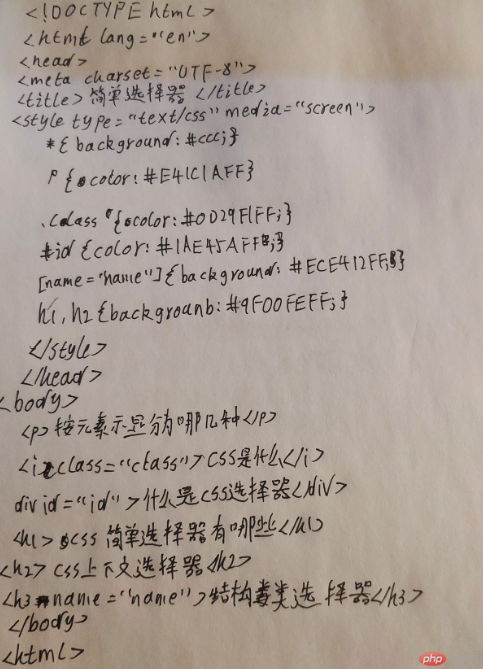 <!DOCTYPE html>
<html lang="en">
<head>
<meta charset="UTF-8">
<title>简单选择器</title>
<style type="text/css" media="screen">
*{background:#ccc;}
P{color:#E41C1AFF}
.class{color:#0D29F1FF;}
#id{color:#1AE45AFF;}
[name="name"]{background:#ECE412FF;}
h1,h2{backgroanb:#9F00FEFF;}
</style>
</head>
<body>
<p>按元素示显分有哪几种</p>
<i class="class">CSS是什么</i>
div id="id">什么是CSS选择器</div>
<h1>css 简单选择器有哪些</h1>
<h2>css上下文选择器<h2>
<h3 name="name">结构类选择器</h3>
</body>
<html>
php